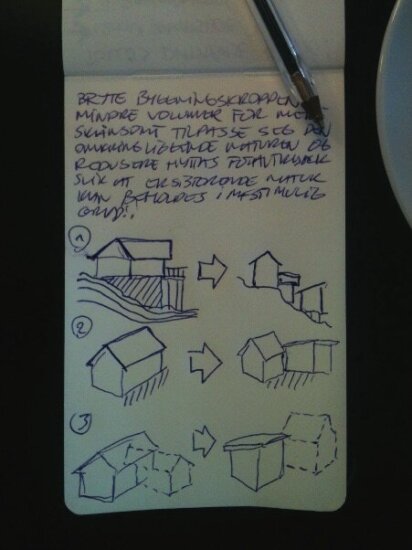 BRYTE BYGNINGSKROPPEN
MINDRE VOLUMER FOR MER
SKÅNSOMT TILPASSE SEG DEN
OMKRINGLIGGENDE NATUREN OG
REDUSERE HYTTAS FOTAVTRYKK
SLIK AT EKSISTERENDE NATUR
KAN BEHOLDES I MEST MULIG
GRAD!
1
2
3